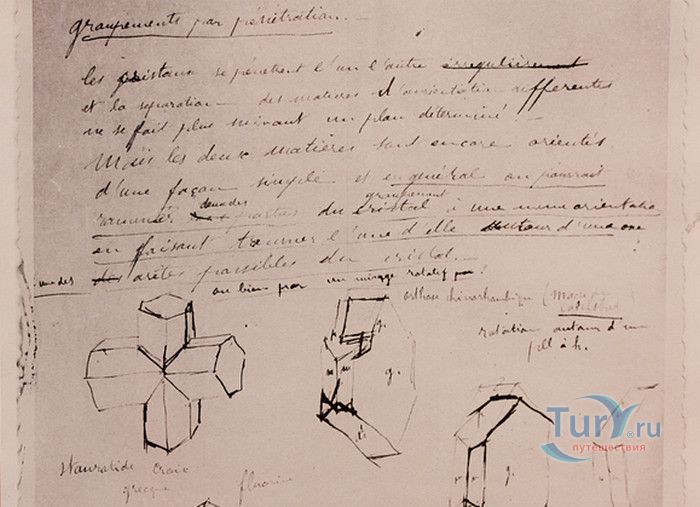 groupements par pénétration. —
les cristaux se pénètrent l'un l'autre irrégulièrement
et la séparation des matières d'orientation differentes
ne se fait plus suivant un plan déterminé.
Mais les deux matières sont encore orientés
d'une façon simple et en général on pourrait
groupement
ramener deux des parties du cristal à une même orientation
en faisant tourner l'une d'elle autour d'une
une des arêtes possibles du cristal. —
ou bien par un mirage rotatif
orthose
rotation autour d'une
pll à h.
m
g.
Staurotide Croix
grecque
fluorine
Tury.ru
путешествия